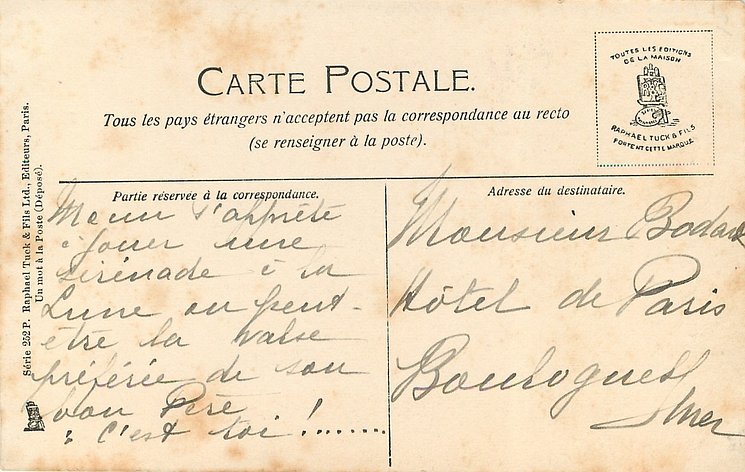 CARTE POSTALE.
Tous les pays étrangers n'acceptent pas la correspondance au recto
(se renseigner à la poste).
TOUTES LES EDITIONS
DE LA MAISON
RAPHAEL TUCK & FILS
PORTENT CETTE MARQUE
Série 252 P. Raphael Tuck & Fils Ltd., Editeurs, Paris.
Un mot à la Poste (Déposé).
Partie réservée à la correspondance.
s'apprête
à jouer une
sérénade à la
Lune ou peut-
être la valse
préférée de son
bon Père
: c'est toi !.......
Adresse du destinataire.
Monsieur
Hôtel de Paris
Boulogne s/
mer